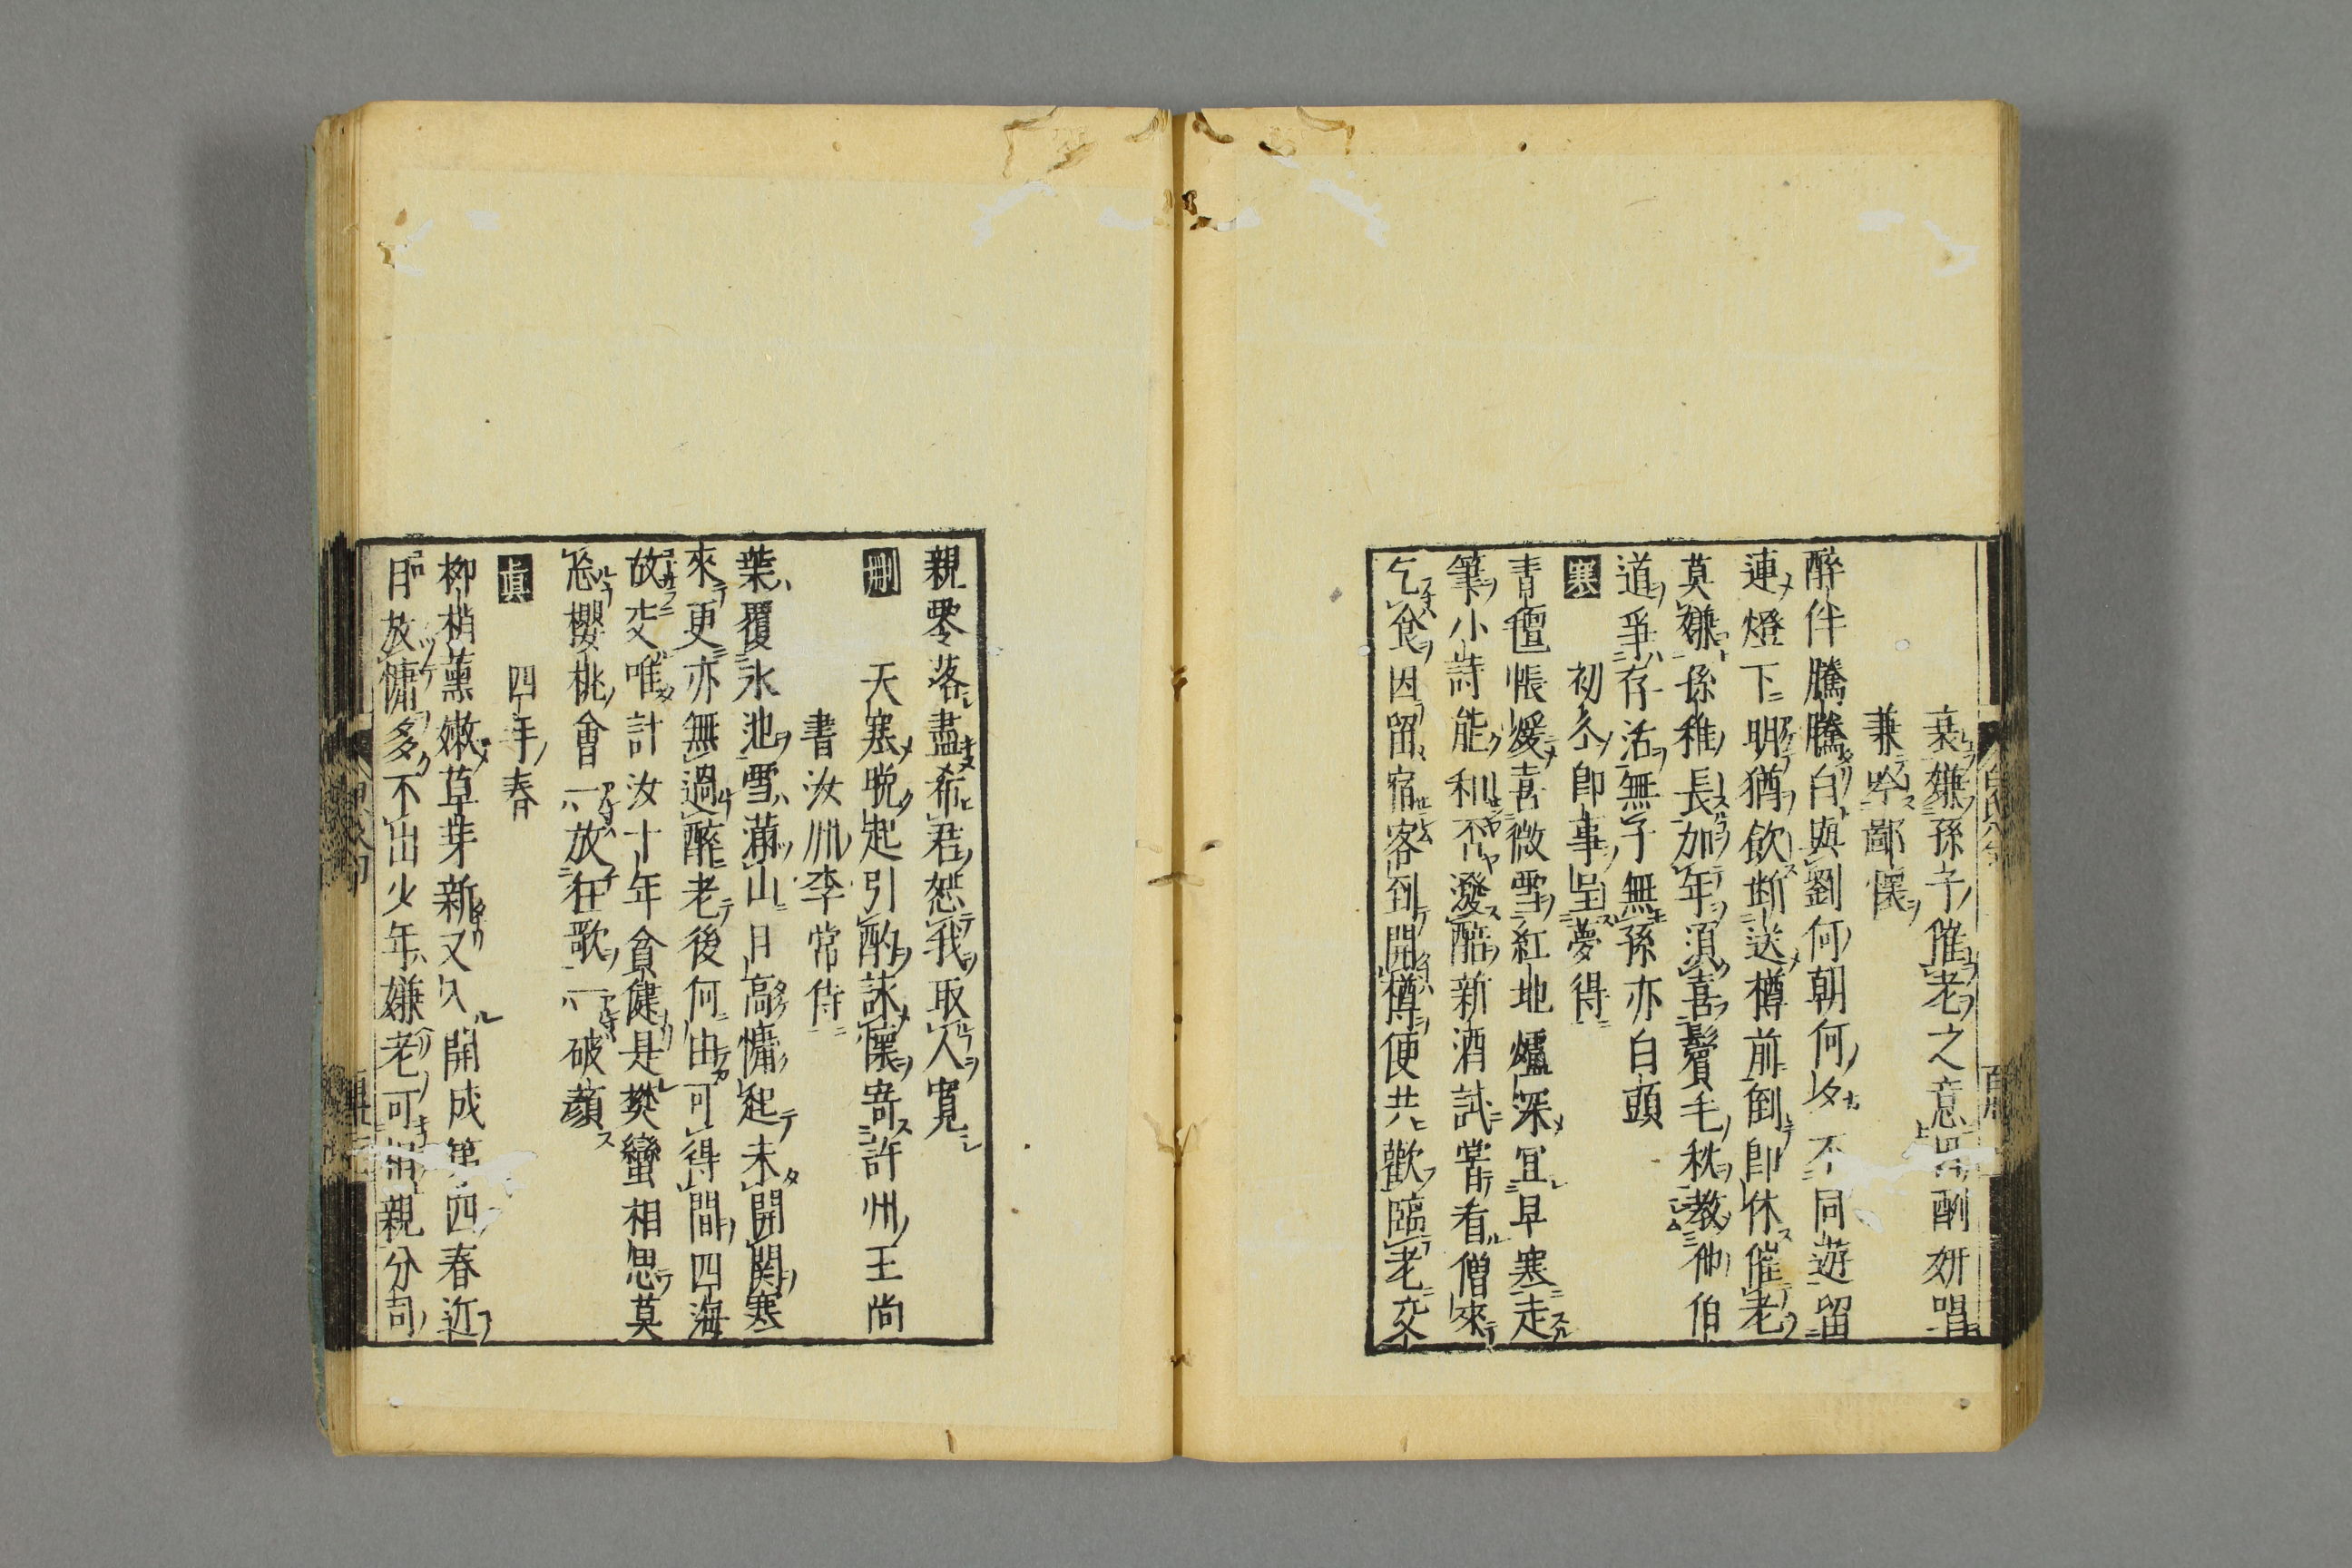 衰嫌孫子催老之意因酬妍唱
兼吟鄙懷
醉伴騰騰白與劉何朝何夕不同遊留
連燈下明猶飲斷送樽前倒即休催老
莫嫌孫稚長加年須喜鬢毛秋教他伯
道爭存活無子無孫亦白頭
寒　初冬即事呈夢得
青氊帳煖喜微雪紅地爐深宜早寒走
筆小詩能和否潑醅新酒試嘗看僧來
乞食因留宿客到開樽便共歡臨老交
親零落盡希君恕我取人寬
刪　天寒晚起引酌詠懷寄許州王尚
書汝州李常侍
葉覆氷池雪滿山日高慵起未開關寒
來更亦無過醉老後何由可得間四海
故交唯計汝十年貧健是樊蠻相思莫
忘櫻桃會一放狂歌一破顏
真　四年春
柳梢薫嫩草芽新又入開成第四春近
日放慵多不出少年嫌老可相親分司